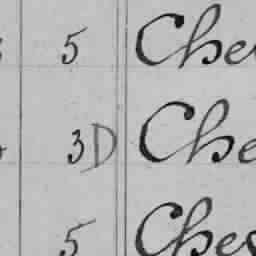 5 Che
3D Che
5 Ches